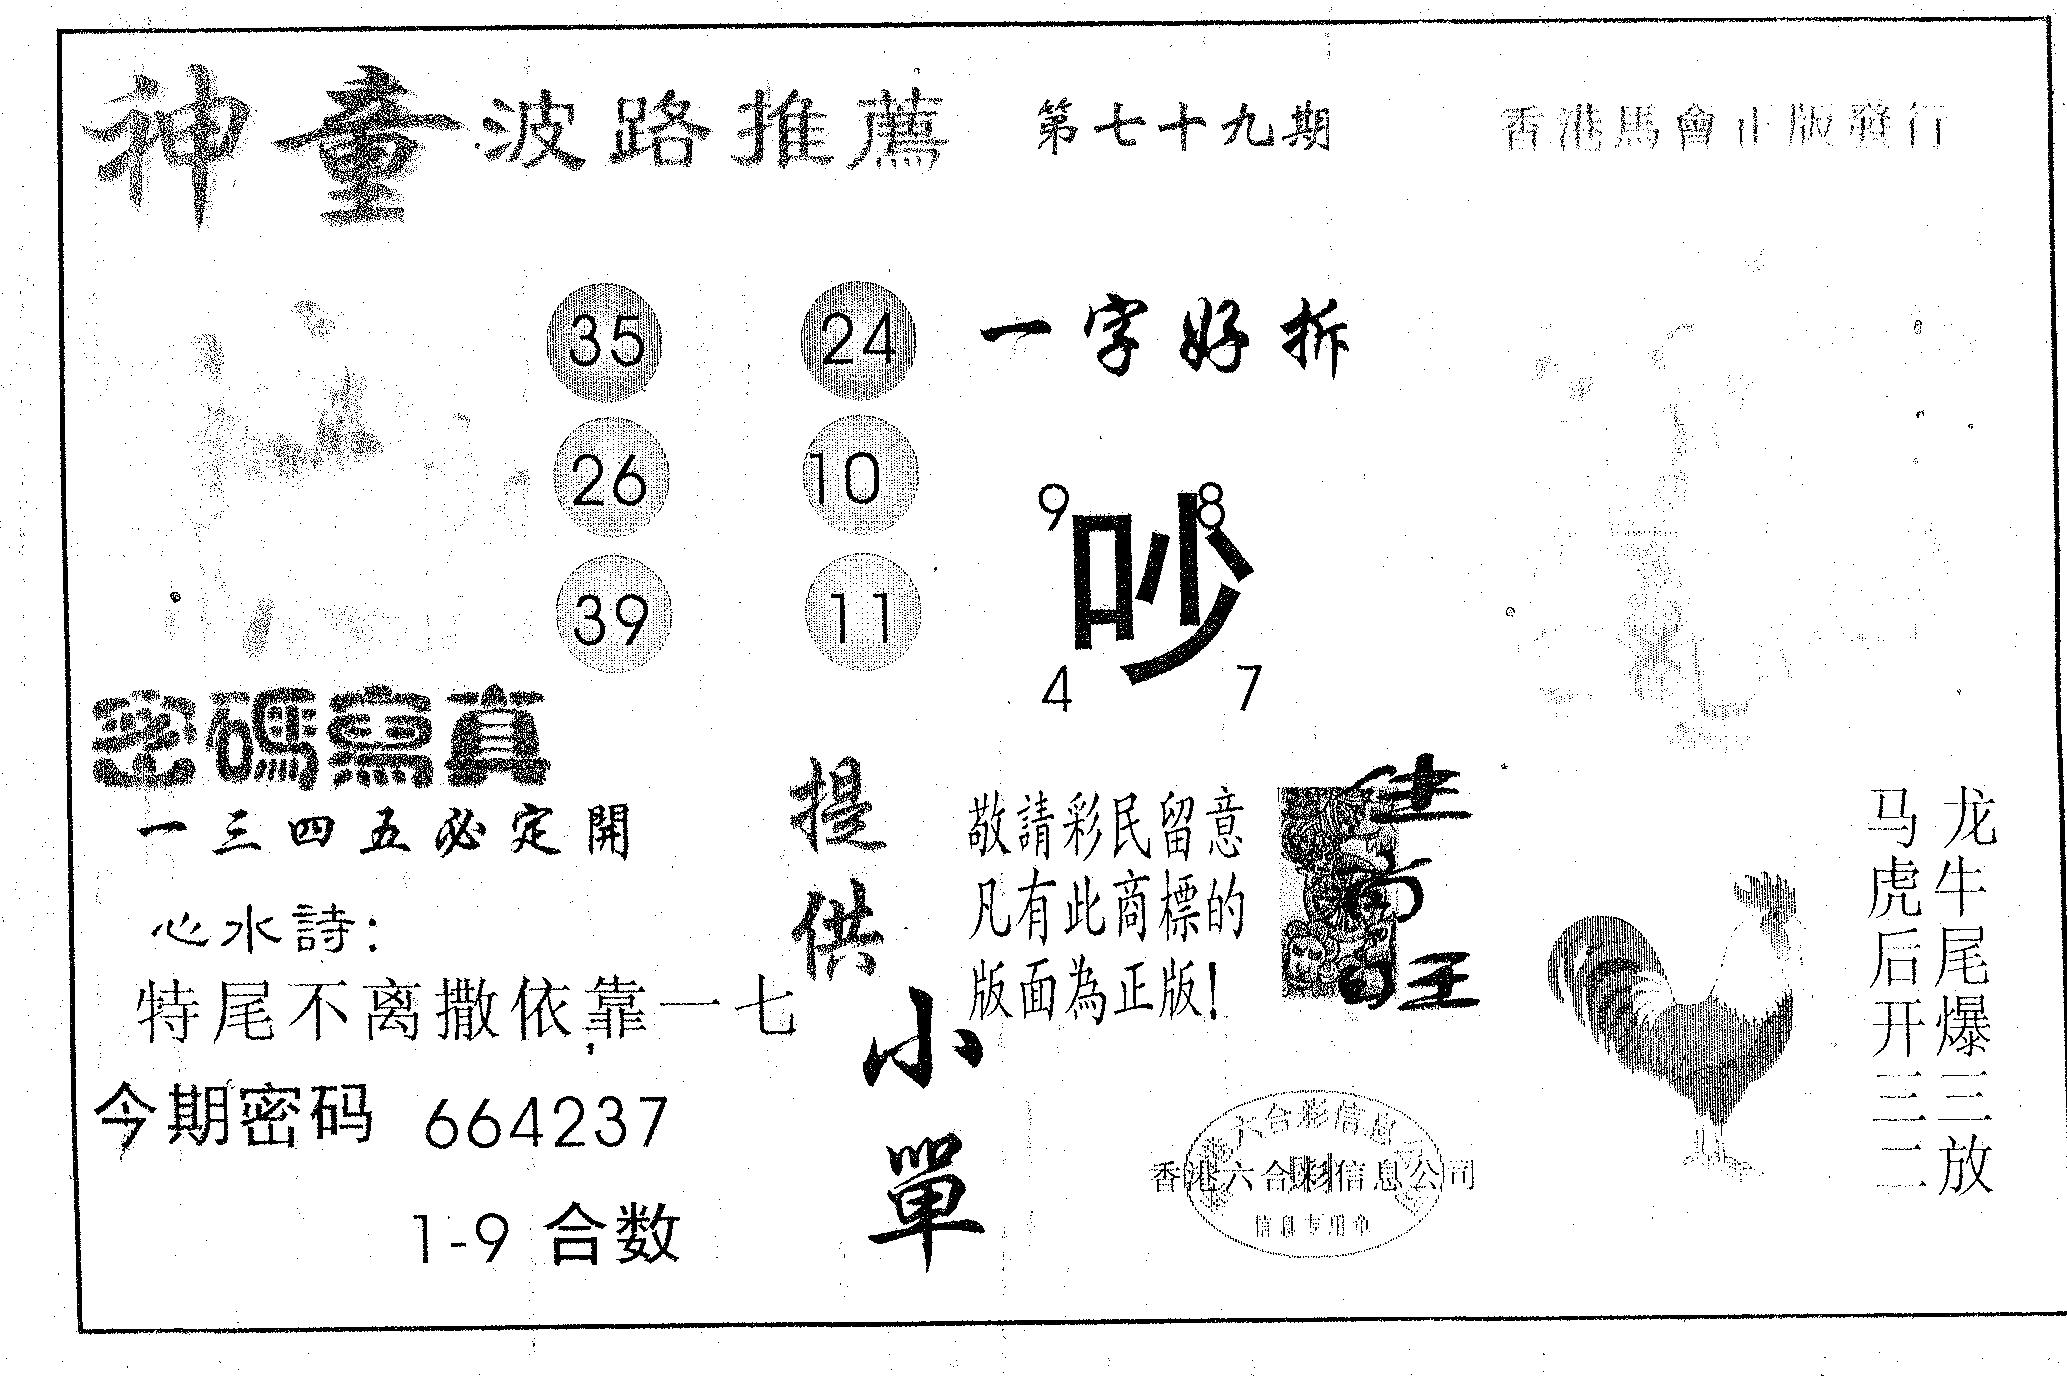 神童波路推薦 第七十九期 香港馬會正版發行
35 24
26 10
39 11
一字好拆
9 8
吵
4 7
密碼寫真
一三四五必定開
心水詩：
特尾不离撒依靠一七，
今期密码 664237
1-9 合数
提供
小單
敬請彩民留意
凡有此商標的
版面為正版！
龙牛尾爆三放
马虎后开三二
六合彩信息
香港六合彩信息公司
信息专用章